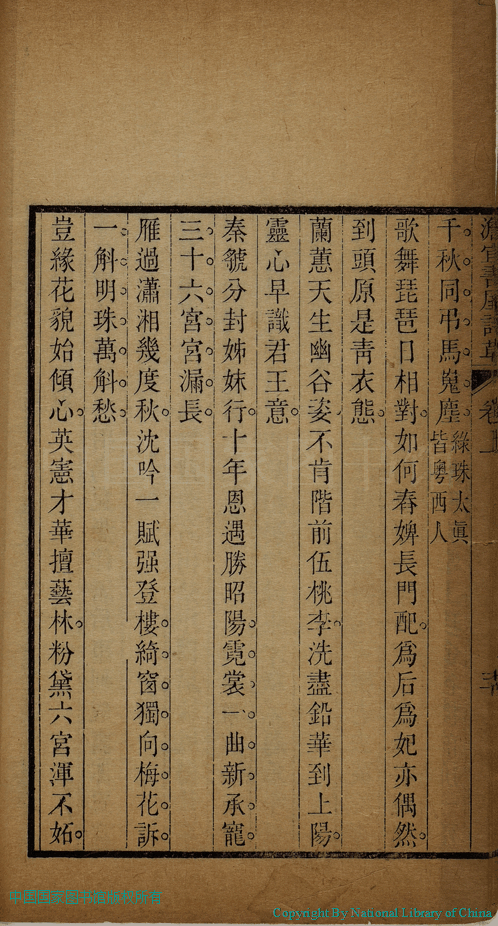 千秋同弔馬嵬塵綠珠太眞皆粤西人
歌舞琵琶日相對如何舂婢長門配爲后爲妃亦偶然
到頭原是靑衣態
蘭蕙天生幽谷姿不肯階前伍桃李洗盡鉛華到上陽
靈心早識君王意
秦虢分封姊妹行十年恩遇勝昭陽霓裳一曲新承寵
三十六宮宮漏長
雁過瀟湘幾度秋沈吟一賦强登樓綺窗獨向梅花訴
一斛明珠萬斛愁
豈緣花貌始傾心英憲才華擅藝林粉黛六宮渾不妬
Copyright By National Library of China